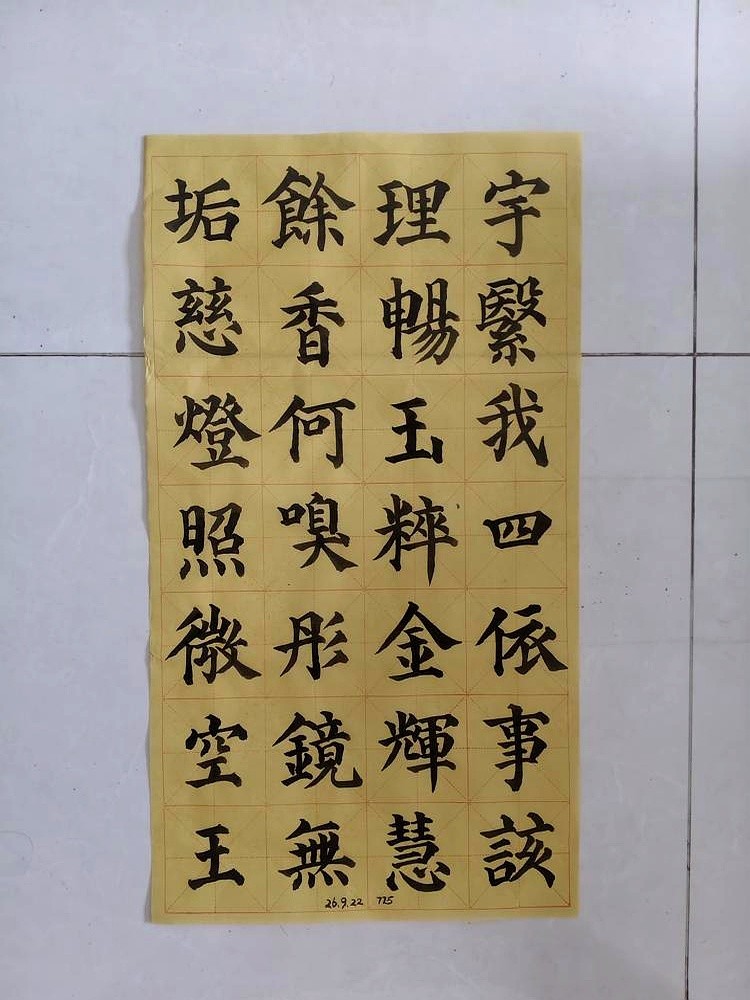 宇繄我四依事該
理暢玉粹金輝慧
餘香何嗅彤鏡無
垢慈燈照微空王
26.9.22 775